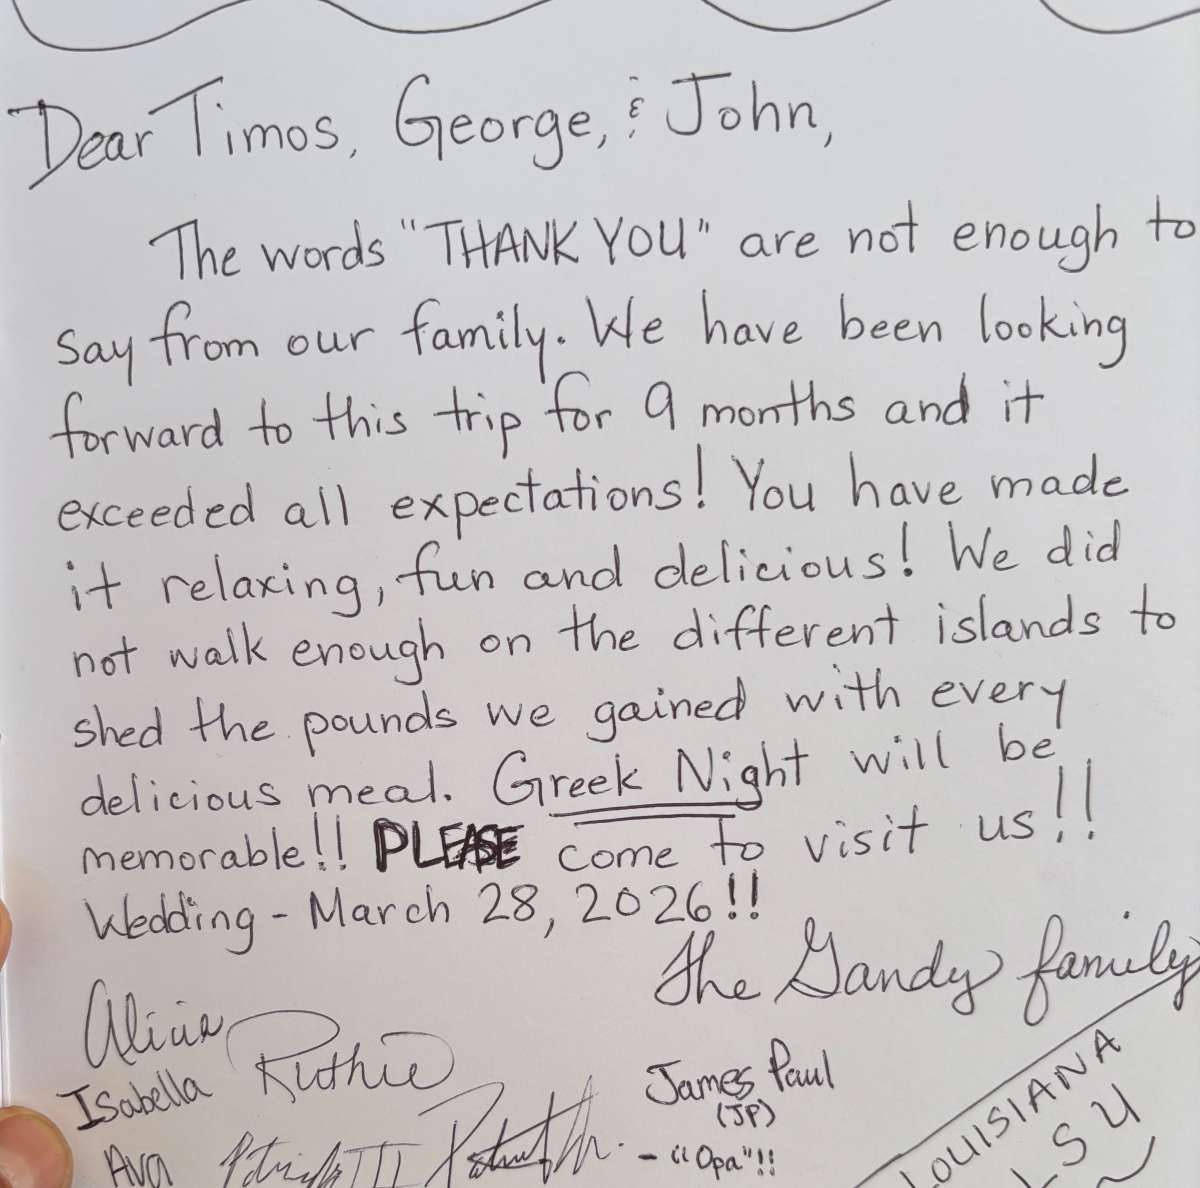 Dear Timos, George, & John,
The words "THANK YOU" are not enough to
say from our family. We have been looking
forward to this trip for 9 months and it
exceeded all expectations! You have made
it relaxing, fun and delicious! We did
not walk enough on the different islands to
shed the pounds we gained with every
delicious meal. Greek Night will be
memorable!! PLEASE come to visit us!!
Wedding - March 28, 2026!!
The Gandy family
Alicia
Ruthie
Isabella
James Paul
(JP)
- "Opa"!!
Ava
Patrick III
LOUISIANA
LSU